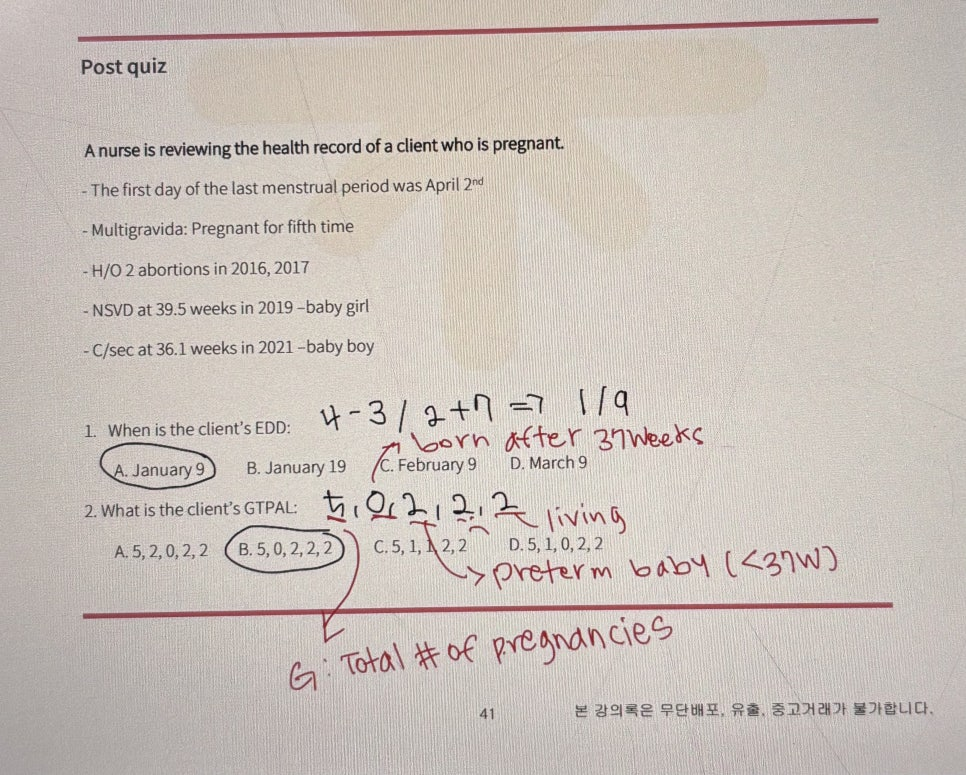 Post quiz
A nurse is reviewing the health record of a client who is pregnant.
- The first day of the last menstrual period was April 2nd
- Multigravida: Pregnant for fifth time
- H/O 2 abortions in 2016, 2017
- NSVD at 39.5 weeks in 2019 –baby girl
- C/sec at 36.1 weeks in 2021 –baby boy
4-3 / 2+7 => 1/9
1. When is the client's EDD:
born after 37weeks
A. January 9 B. January 19 C. February 9 D. March 9
2. What is the client's GTPAL: 5, 0, 2, 2, 2
living
A. 5, 2, 0, 2, 2 B. 5, 0, 2, 2, 2 C. 5, 1, 1, 2, 2 D. 5, 1, 0, 2, 2
preterm baby (<37W)
G: Total # of pregnancies
41
본 강의록은 무단배포, 유출, 중고거래가 불가합니다.